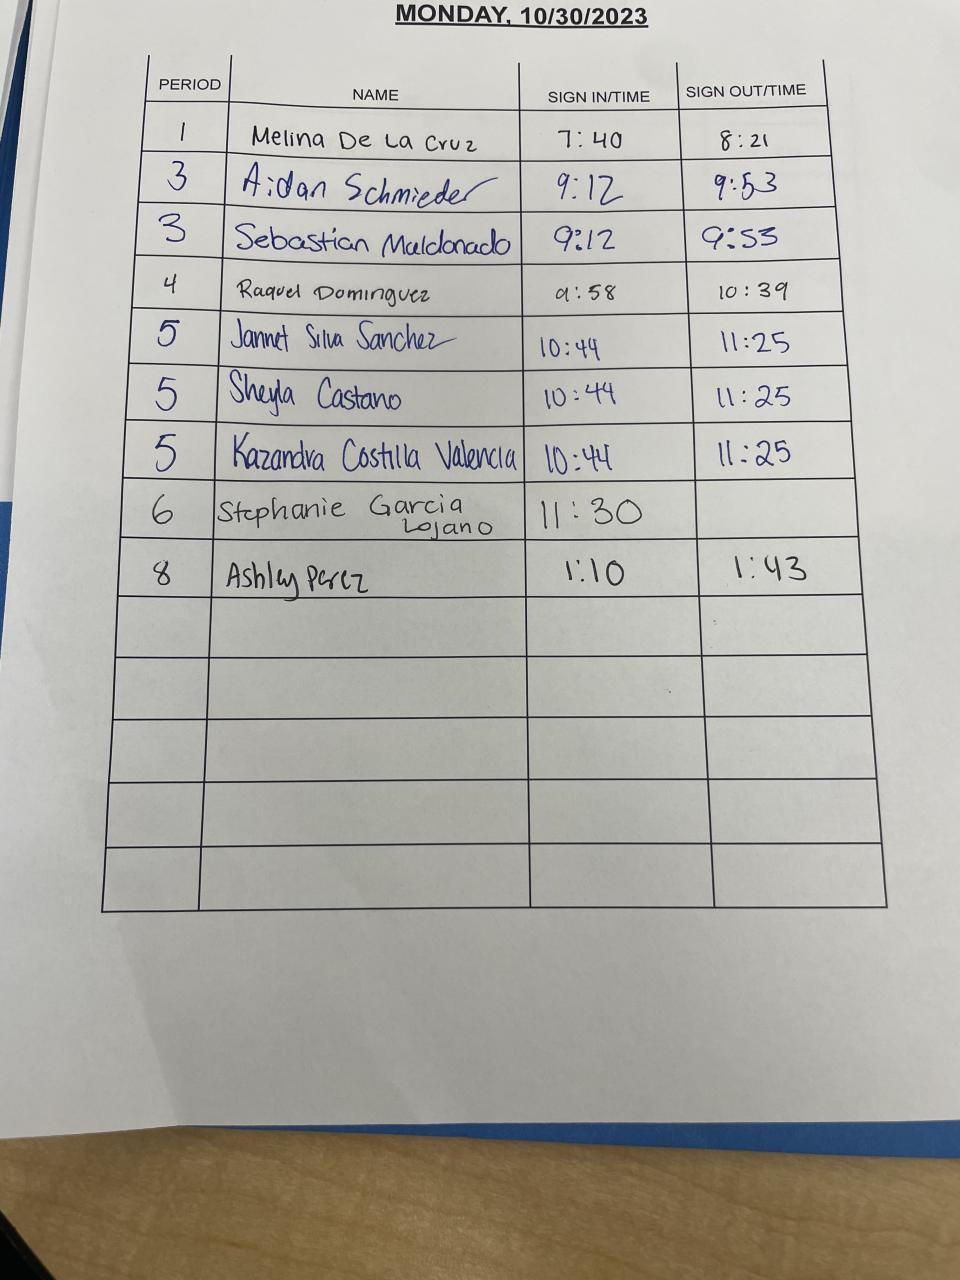 MONDAY, 10/30/2023
PERIOD NAME SIGN IN/TIME SIGN OUT/TIME
1 Melina De La Cruz 7:40 8:21
3 Aidan Schmieder 9:12 9:53
3 Sebastian Maldonado 9:12 9:53
4 Raquel Dominguez 9:58 10:39
5 Jannet Silva Sanchez 10:44 11:25
5 Sheyla Castano 10:44 11:25
5 Kazandra Costilla Valencia 10:44 11:25
6 Stephanie Garcia 11:30
Lojano
8 Ashley Perez 1:10 1:43